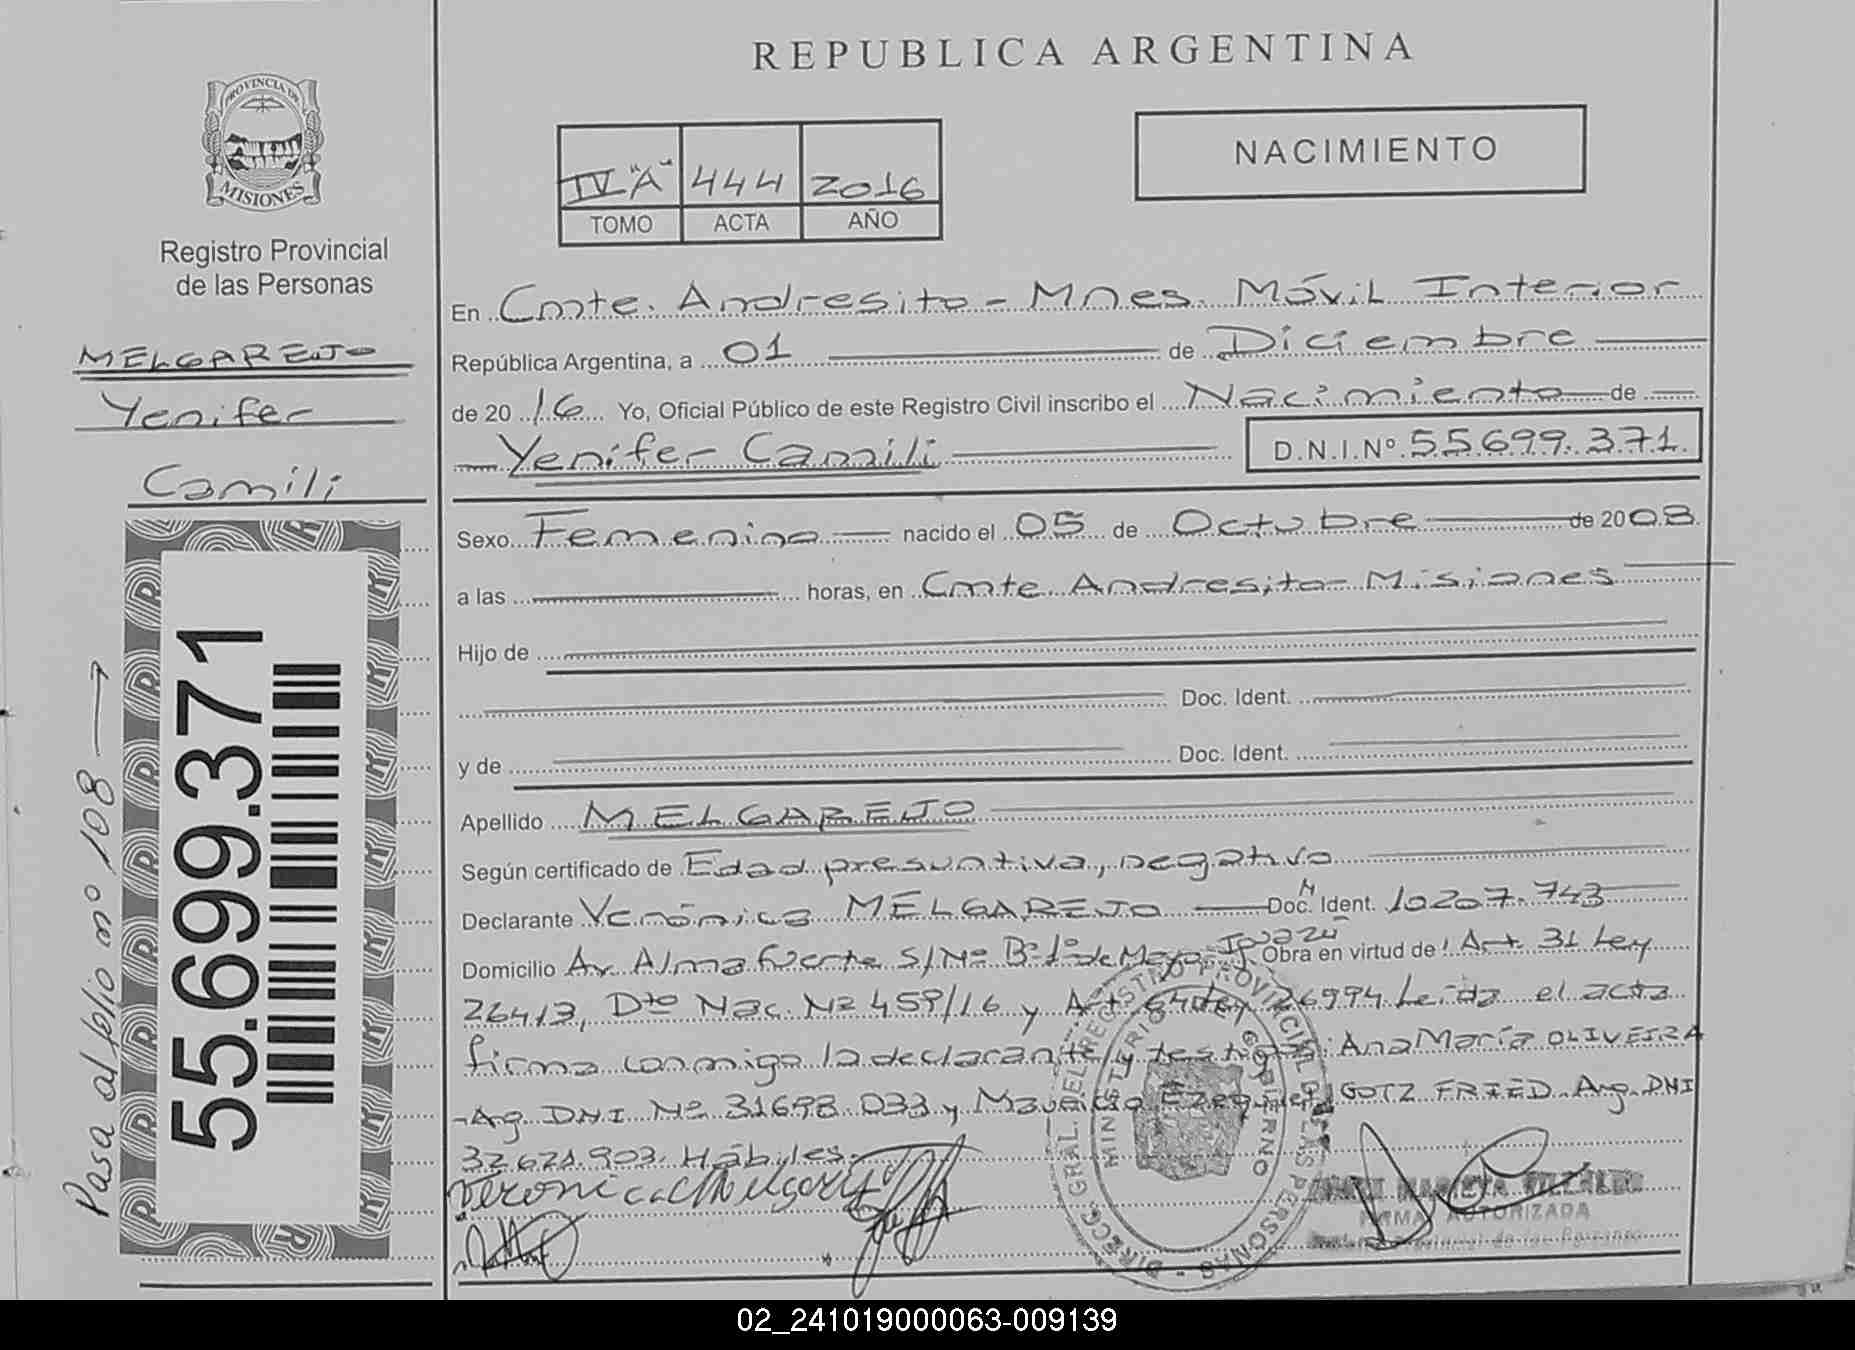 REPUBLICA ARGENTINA
PROVINCIA DE
MISIONES
Registro Provincial
de las Personas
NACIMIENTO
IV "A" 444 2016
TOMO ACTA AÑO
MELGAREJO
Yenifer
Camili
Pasa al folio nº 108
55.699.371
En Cmte. Andresito - Mnes. Móvil Interior
República Argentina, a 01 de Diciembre
de 2016 Yo, Oficial Público de este Registro Civil inscribo el Nacimiento de
Yenifer Camili D.N.I.Nº 55.699.371.
Sexo Femenino nacido el 05 de Octubre de 2008
a las horas, en Cmte Andresito - Misiones
Hijo de
Doc. Ident.
y de Doc. Ident.
Apellido MELGAREJO
Según certificado de Edad presuntiva, negativo
Declarante Verónica MELGAREJO Doc. Ident. M 10207.743
Domicilio Av. Almafuerte S/Nº Bº 1º de Mayo Obra en virtud de: Art. 31 Ley
26413, Dto Nac. Nº 459/16 y Art 64 Ley 26994. Leida el acta
firma conmigo la declarante y testigos: Ana María OLIVEIRA
-Arg. DNI Nº 31698.033 y Mauricio Ezequiel GOTZ FRIED. Arg. DNI
32.621.903. Hábiles.
Veronica Melgarejo
DIRECC. GRAL. DEL REGISTRO PROVINCIAL DE LAS PERSONAS
MINISTERIO DE GOBIERNO
FIRMA AUTORIZADA
Provincial de las Personas
02_241019000063-009139